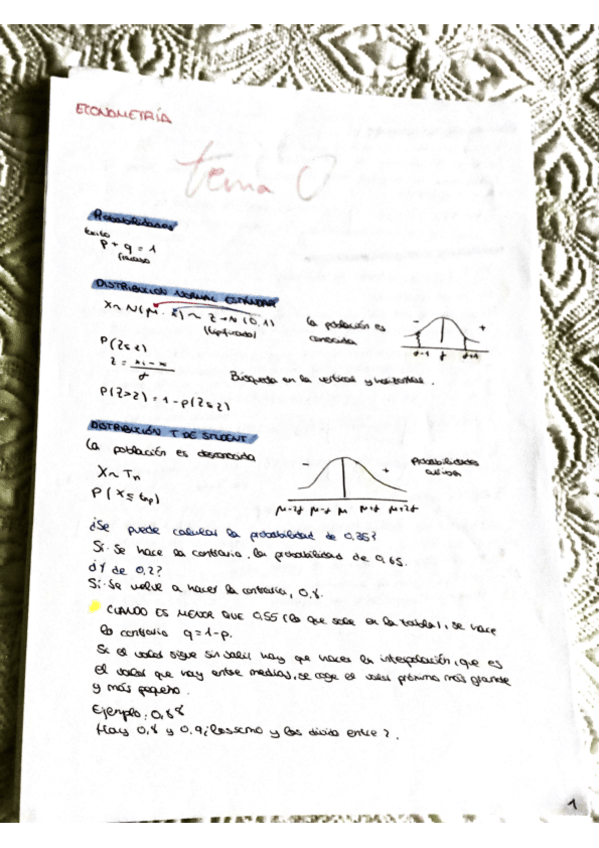 ECONOMETRÍA
tema 0
Probabilidades
éxito
p + q = 1
fracaso
DISTRIBUCIÓN NORMAL ESTÁNDAR
X ~ N(μ, σ) ~ Z → N(0,1)
(tipificada)
La población es
conocida
- +
P(Z ≤ z)
z = xi - m / σ
Búsqueda en la vertical y horizontal.
P(Z > z) = 1 - P(Z ≤ z)
DISTRIBUCIÓN T DE STUDENT
La población es desconocida
X ~ Tn
P(X ≤ tn,p)
- +
Probabilidades
μ-2σ μ-σ μ μ+σ μ+2σ
¿Se puede calcular la probabilidad de 0,35?
Sí. Se hace la contraria, la probabilidad de 0,65.
¿Y de 0,2?
Sí. Se vuelve a hacer la contraria, 0,8.
CUANDO ES MENOR QUE 0,55 (lo que sale en la tabla), se hace
la contraria q = 1-p.
Si el valor sigue sin salir hay que hacer la interpolación, que es
el valor que hay entre medias, se coge el valor próximo más grande
y más pequeño.
Ejemplo: 0,88
Hay 0,8 y 0,9, los sumo y los divido entre 2.
1